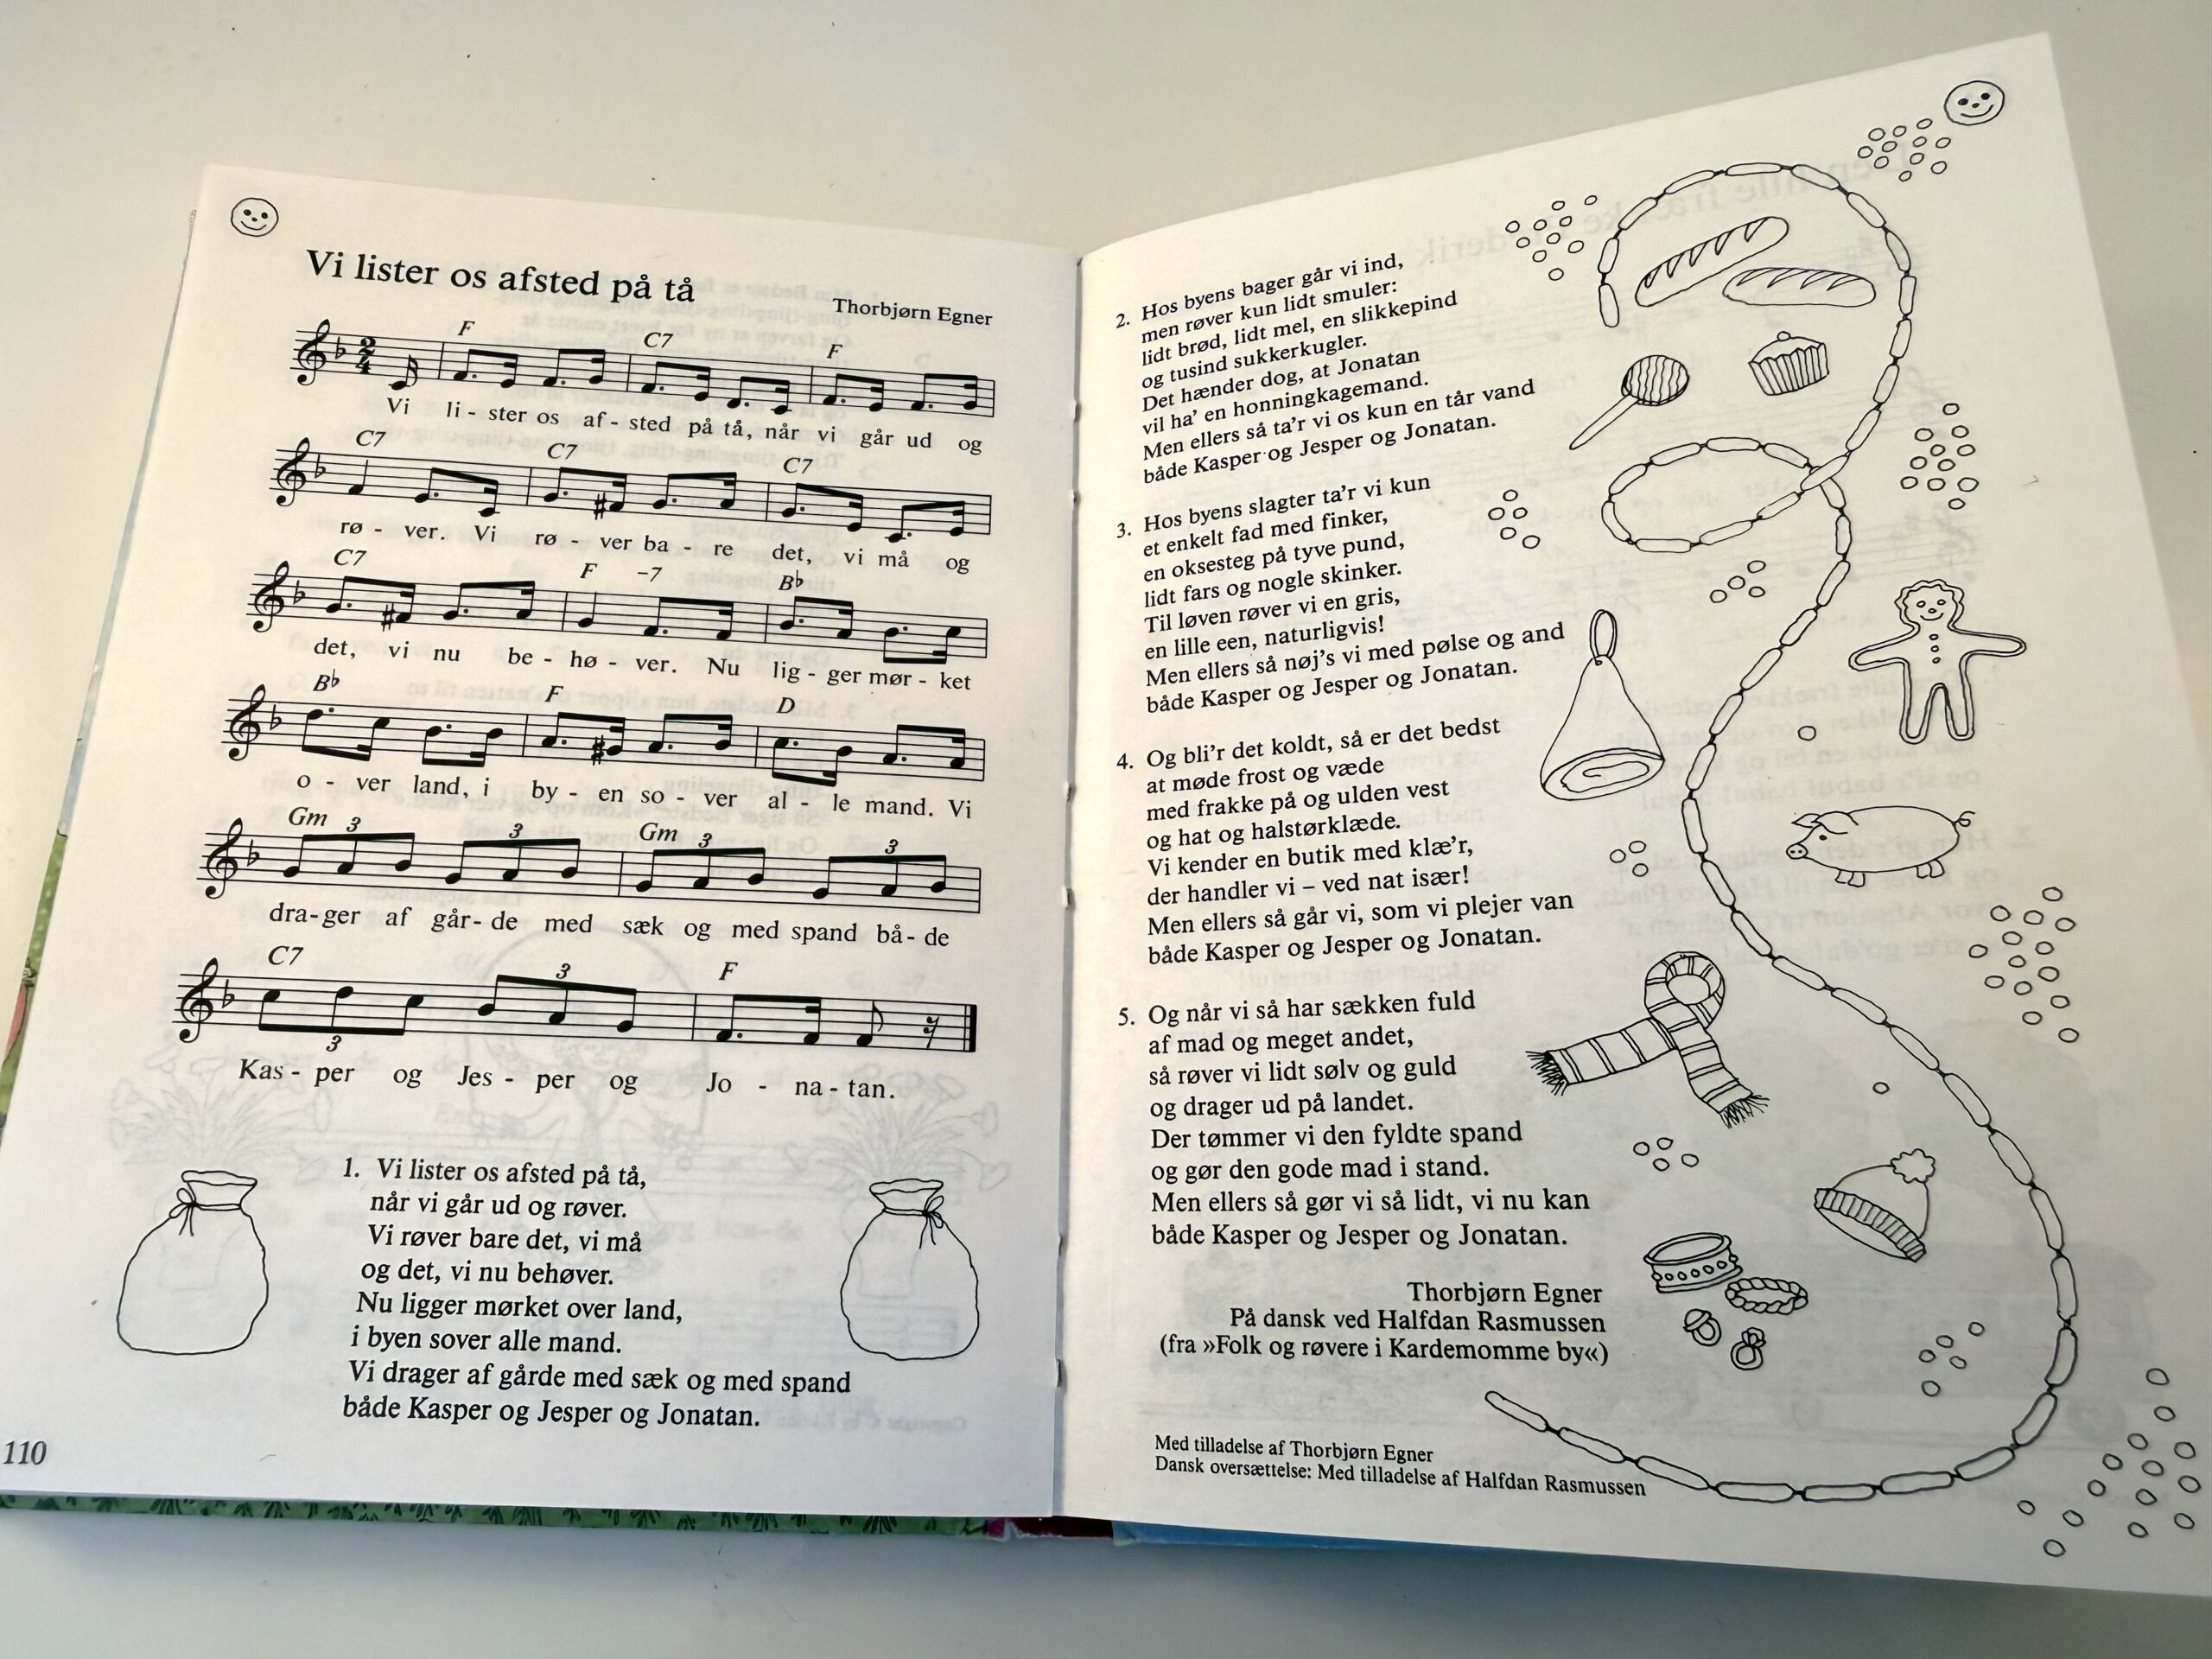 Vi lister os afsted på tå
Thorbjørn Egner
F C7 F
2 4
Vi li - ster os af - sted på tå, når vi går ud og
C7 C7 C7
rø - ver. Vi rø - ver ba - re det, vi må og
C7 F -7 Bb
det, vi nu be - hø - ver. Nu lig - ger mør - ket
Bb F D
o - ver land, i by - en so - ver al - le mand. Vi
Gm 3 3 Gm 3 3
dra - ger af går - de med sæk og med spand bå - de
C7 3 F
3
Kas - per og Jes - per og Jo - na - tan.
1. Vi lister os afsted på tå,
når vi går ud og røver.
Vi røver bare det, vi må
og det, vi nu behøver.
Nu ligger mørket over land,
i byen sover alle mand.
Vi drager af gårde med sæk og med spand
både Kasper og Jesper og Jonatan.
110
2. Hos byens bager går vi ind,
men røver kun lidt smuler:
lidt brød, lidt mel, en slikkepind
og tusind sukkerkugler.
Det hænder dog, at Jonatan
vil ha' en honningkagemand.
Men ellers så ta'r vi os kun en tår vand
både Kasper og Jesper og Jonatan.
3. Hos byens slagter ta'r vi kun
et enkelt fad med finker,
en oksesteg på tyve pund,
lidt fars og nogle skinker.
Til løven røver vi en gris,
en lille een, naturligvis!
Men ellers så nøj's vi med pølse og and
både Kasper og Jesper og Jonatan.
4. Og bli'r det koldt, så er det bedst
at møde frost og væde
med frakke på og ulden vest
og hat og halstørklæde.
Vi kender en butik med klæ'r,
der handler vi – ved nat især!
Men ellers så går vi, som vi plejer van
både Kasper og Jesper og Jonatan.
5. Og når vi så har sækken fuld
af mad og meget andet,
så røver vi lidt sølv og guld
og drager ud på landet.
Der tømmer vi den fyldte spand
og gør den gode mad i stand.
Men ellers så gør vi så lidt, vi nu kan
både Kasper og Jesper og Jonatan.
Thorbjørn Egner
På dansk ved Halfdan Rasmussen
(fra »Folk og røvere i Kardemomme by«)
Med tilladelse af Thorbjørn Egner
Dansk oversættelse: Med tilladelse af Halfdan Rasmussen